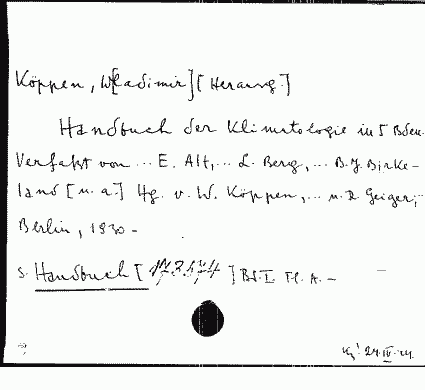 Köppen, Wl[adimir] [Herausg.]
Handbuch der Klimatologie in 5 Bden.
Verfaßt von ... E. Alt, ... L. Berg, ... B.J. Birke-
land [u. a.] Hg. v. W. Köppen, ... u. R. Geiger,
Berlin, 1930 -
s. Handbuch [ ] Bd. I Tl. A. -